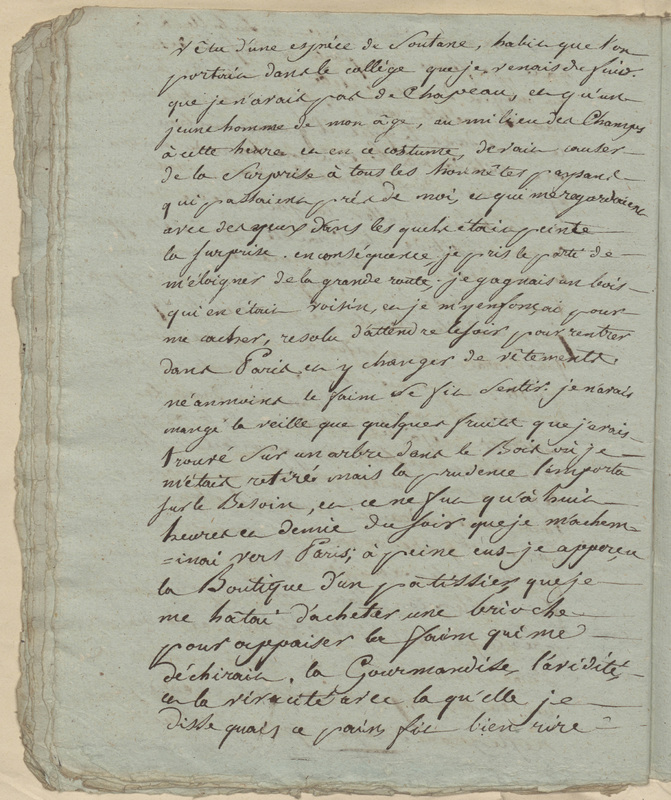 vêtu d'une espèce de Soutane, habit que l'on
portait dans le collége que je venais de fuir.
que je n'avais pas de Chapeau, et qu'un
jeune homme de mon âge, au milieu des Champs
à cette heure et en ce costume, devait causer
de la Surprise à tous les honnêtes paysans
qui passaient près de moi, et qui me regardaient
avec des yeux dans les quels était peinte
la surprise. en conséquence, je pris le parti de
m'éloigner de la grande route. je gagnais un bois
qui en était voisin, et je m'y enfonçai pour
me cacher, resolu d'attendre le soir pour rentrer
dans Paris et y changer de vêtements.
néanmoins le faim se fit sentir. je n'avais
mangé la veille que quelques fruits que j'avais
trouvé sur un arbre dans le Bois où je
m'étais retiré mais la prudence l'emporta
sur le Besoin, et ce ne fut qu'à huit
heures et demie du soir que je m'achem-
=inai vers Paris; à peine eus-je apperçu
la Boutique d'un patissier, que je
me hatai d'acheter une brioche
pour appaiser la faim qui me
déchirait. la Gourmandise, l'avidité,
et la viracité avec la qu'elle je
disse quais ce pain, fit bien rire